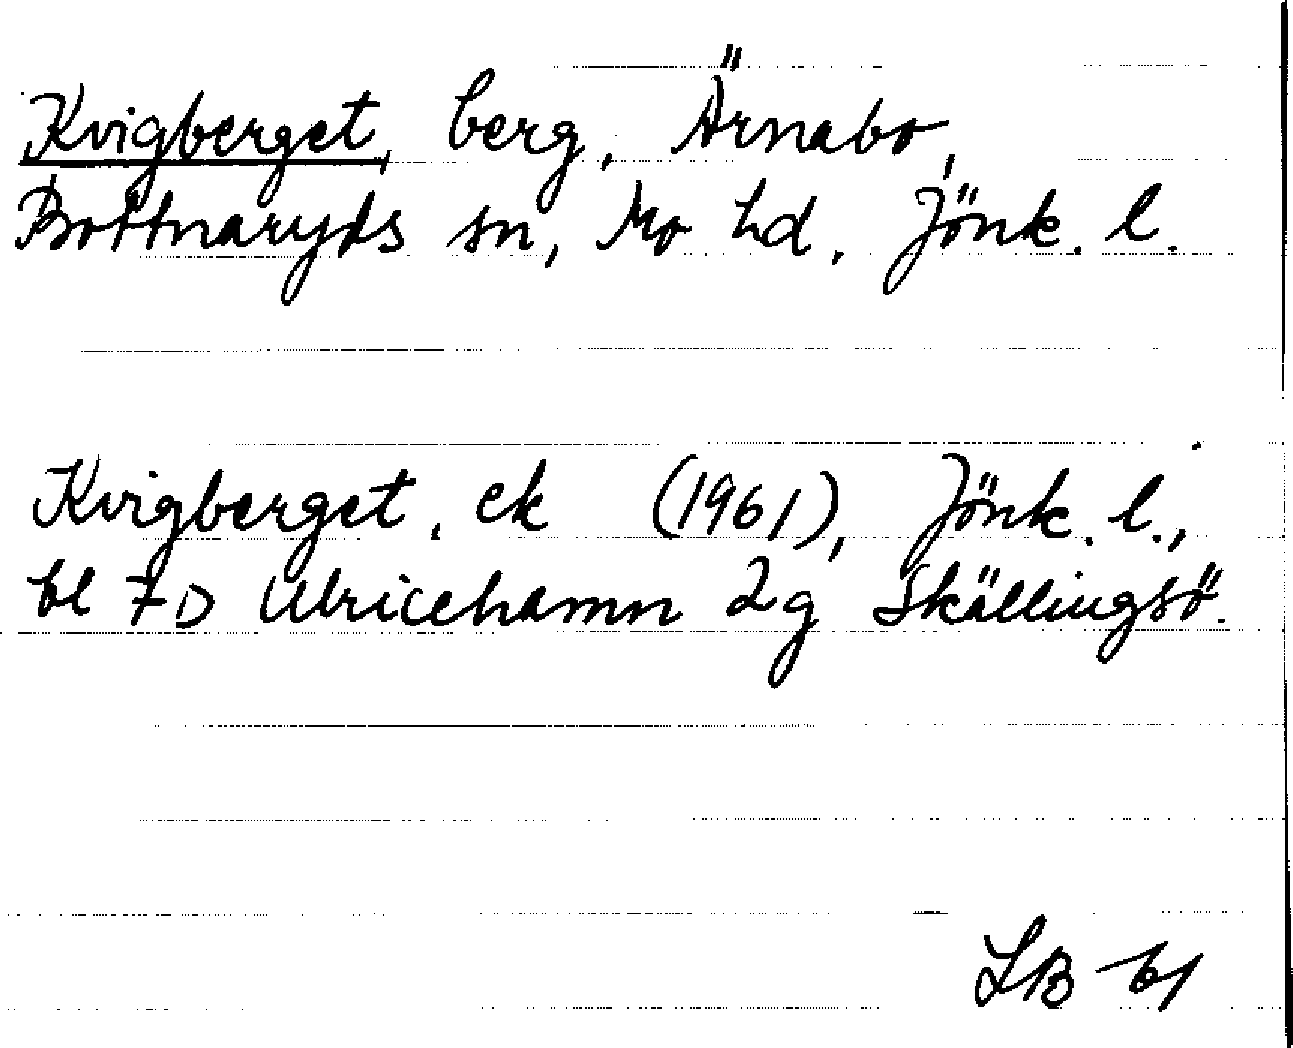 Kvigberget, berg, Ärnabo,
Bottnaryds sn, Mo hd, Jönk. l.
Kvigberget, ek (1961), Jönk. l.,
bl 7D Ulricehamn 2g Skällingsö.
LB 61